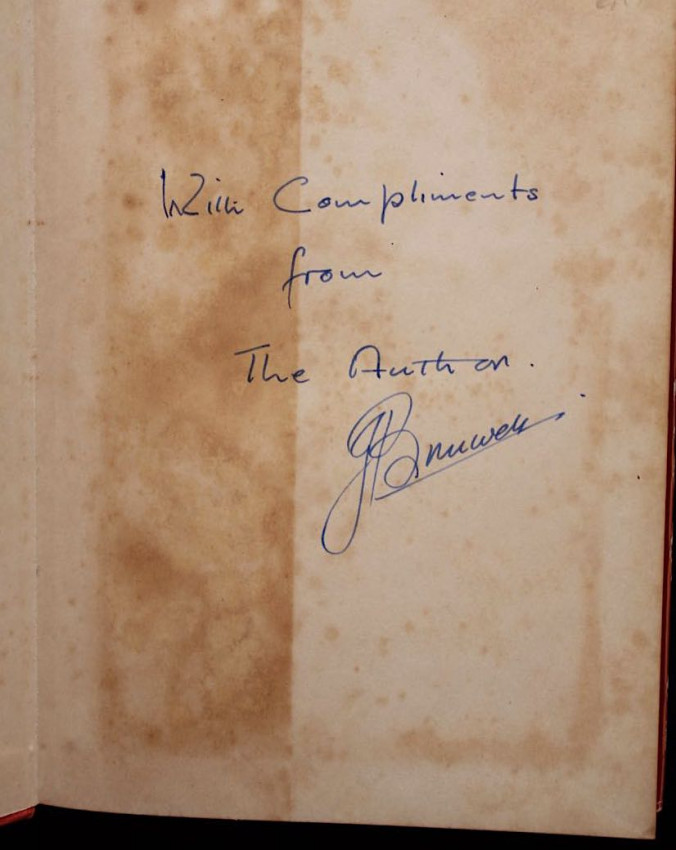 With Compliments
from
The Author.